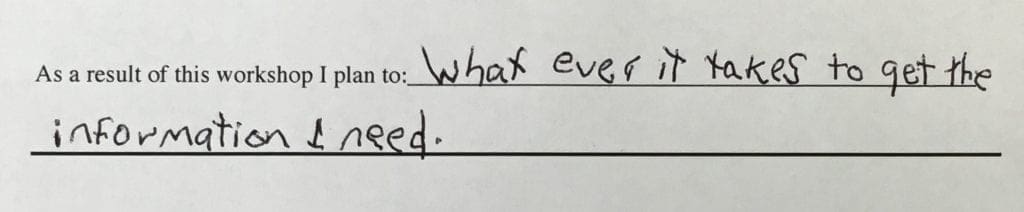 As a result of this workshop I plan to: What ever it takes to get the
information I need.